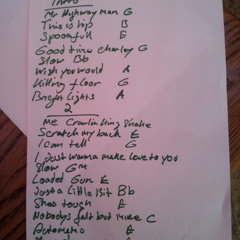 Intro
Mr Highway man G
This is hip B
Spoonfull E
Good time charley G
Slow Bb
Wish you would A
Killing floor G
Bright lights A
2
Me Crawlin King Snake
Scratch my back E
I can tell G
I Just wanna make love to you
Slow Gm
Loaded Gun E
Just a Little Bit Bb
Shes tough E
Nobodys falt but mine C
Automatic E